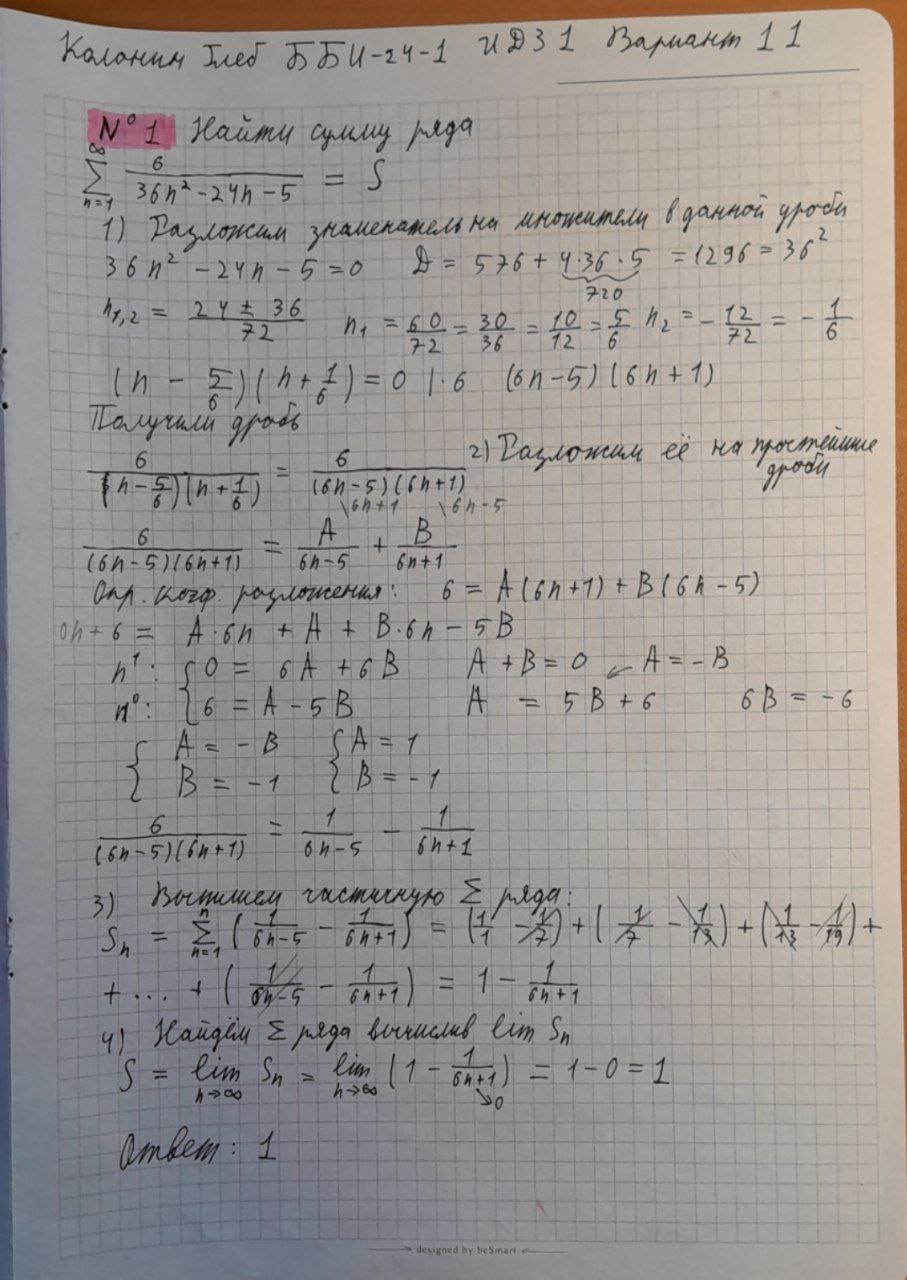 Колонин Глеб ББИ-24-1 ИДЗ 1 Вариант 11
№1 Найти сумму ряда
∑_{n=1}^{∞} 6/(36n² - 24n - 5) = S
1) Разложим знаменатель на множители в данной дроби
36n² - 24n - 5 = 0 D = 576 + 4·36·5 = 1296 = 36²
720
n₁,₂ = (24 ± 36)/72 n₁ = 60/72 = 30/36 = 10/12 = 5/6 n₂ = -12/72 = -1/6
(n - 5/6)(n + 1/6) = 0 |·6 (6n-5)(6n+1)
Получили дробь
6/((n - 5/6)(n + 1/6)) = 6/((6n-5)(6n+1)) 2) Разложим её на простейшие дроби
\6n+1 \6n-5
6/((6n-5)(6n+1)) = A/(6n-5) + B/(6n+1)
Опр. коэф. разложения: 6 = A(6n+1) + B(6n-5)
0n + 6 = A·6n + A + B·6n - 5B
n¹: { 0 = 6A + 6B A + B = 0 ↙ A = -B
n⁰: { 6 = A - 5B A = 5B + 6 6B = -6
{ A = -B { A = 1
{ B = -1 { B = -1
6/((6n-5)(6n+1)) = 1/(6n-5) - 1/(6n+1)
3) Выпишем частичную Σ ряда:
Sn = ∑_{n=1}^{n} (1/(6n-5) - 1/(6n+1)) = (1/1 - 1/7) + (1/7 - 1/13) + (1/13 - 1/19) +
+ ... + (1/(6n-5) - 1/(6n+1)) = 1 - 1/(6n+1)
4) Найдём Σ ряда вычислив lim Sn
S = lim_{n→∞} Sn = lim_{n→∞} (1 - 1/(6n+1)) = 1 - 0 = 1
↘0
Ответ: 1
designed by beSmart